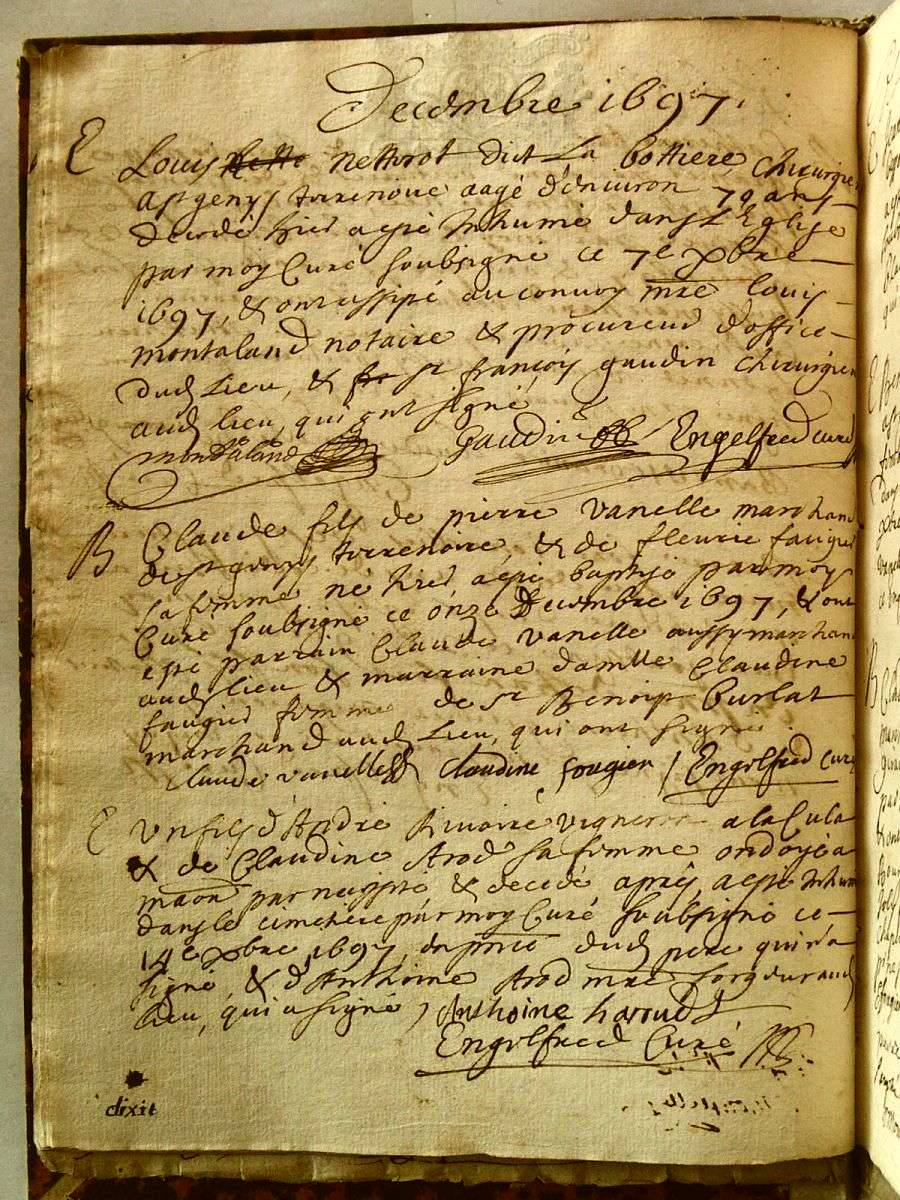 Decembre 1697.
E Louis Nettivot dict La bottiere, chirurgien
a st genys terrenoire aagé d'environ 79 ans
decedé hier a esté Inhumé dans L'Eglise
par moy Curé soubsigné ce 7e xbre
1697, & ont assisté au convoy mre louis
montaland notaire & procureur d'office
dud. Lieu, & sr françois gaudin chirurgien
aud. lieu, qui ont signé
montaland Gaudin Engelfred curé
B Claude fils de pierre vanelle marchand
de st genys terrenoire, & de fleurie faugier
sa femme né hier a esté baptisé par moy
Curé soubsigné ce onze Decembre 1697, & ont
esté parrain Claude vanelle aussy marchand
aud. lieu & marraine damlle Claudine
faugier femme de sr Benoit Burlat
marchand aud. Lieu, qui ont signé
claude vanelle claudine fougier Engelfred curé
E Un fils d'André Rivoire vigneron a la Cula
& de Claudine Arod sa femme ondoyé a
maon par necessité & decedé après, a esté Inhumé
dans le cimetiere par moy Curé soubsigné ce
14e xbre 1697, en pnce dud. pere qui n'a
signé, & d'Anthoine Arod mre forgeur aud.
lieu, qui a signé, Anthoine haroud
Engelfred Curé
dixit